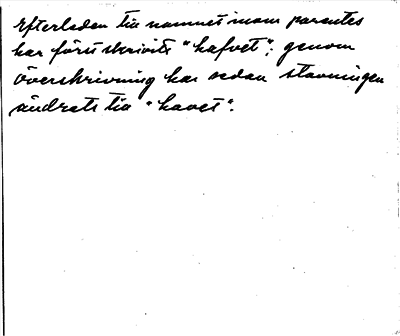 Efterleden till namnet inom parentes
har först skrivits "hafvet"; genom
överskrivning har sedan stavningen
ändrats till "havet".